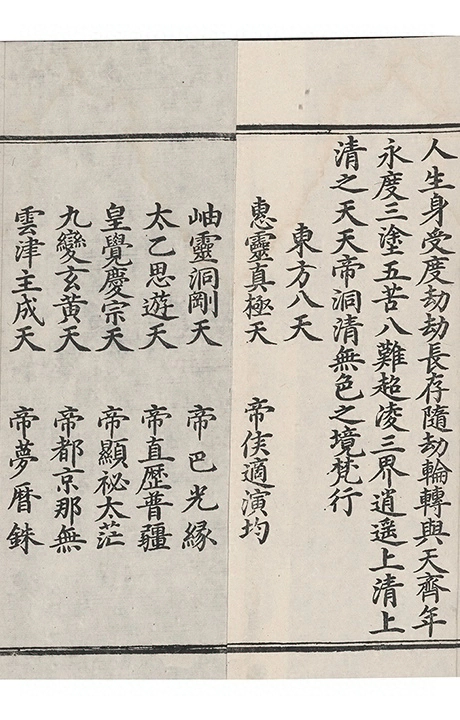 人生身受度劫劫長存隨劫輪轉與天齊年
永度三塗五苦八難超凌三界逍遥上清上
清之天天帝洞清無色之境梵行
東方八天
惠靈真極天 帝俟適演均
岫靈洞剛天 帝巴光緣
太乙思遊天 帝直歷普疆
皇覺慶宗天 帝顯祕太茫
九變玄黃天 帝都京那無
雲津主成天 帝夢曆銖